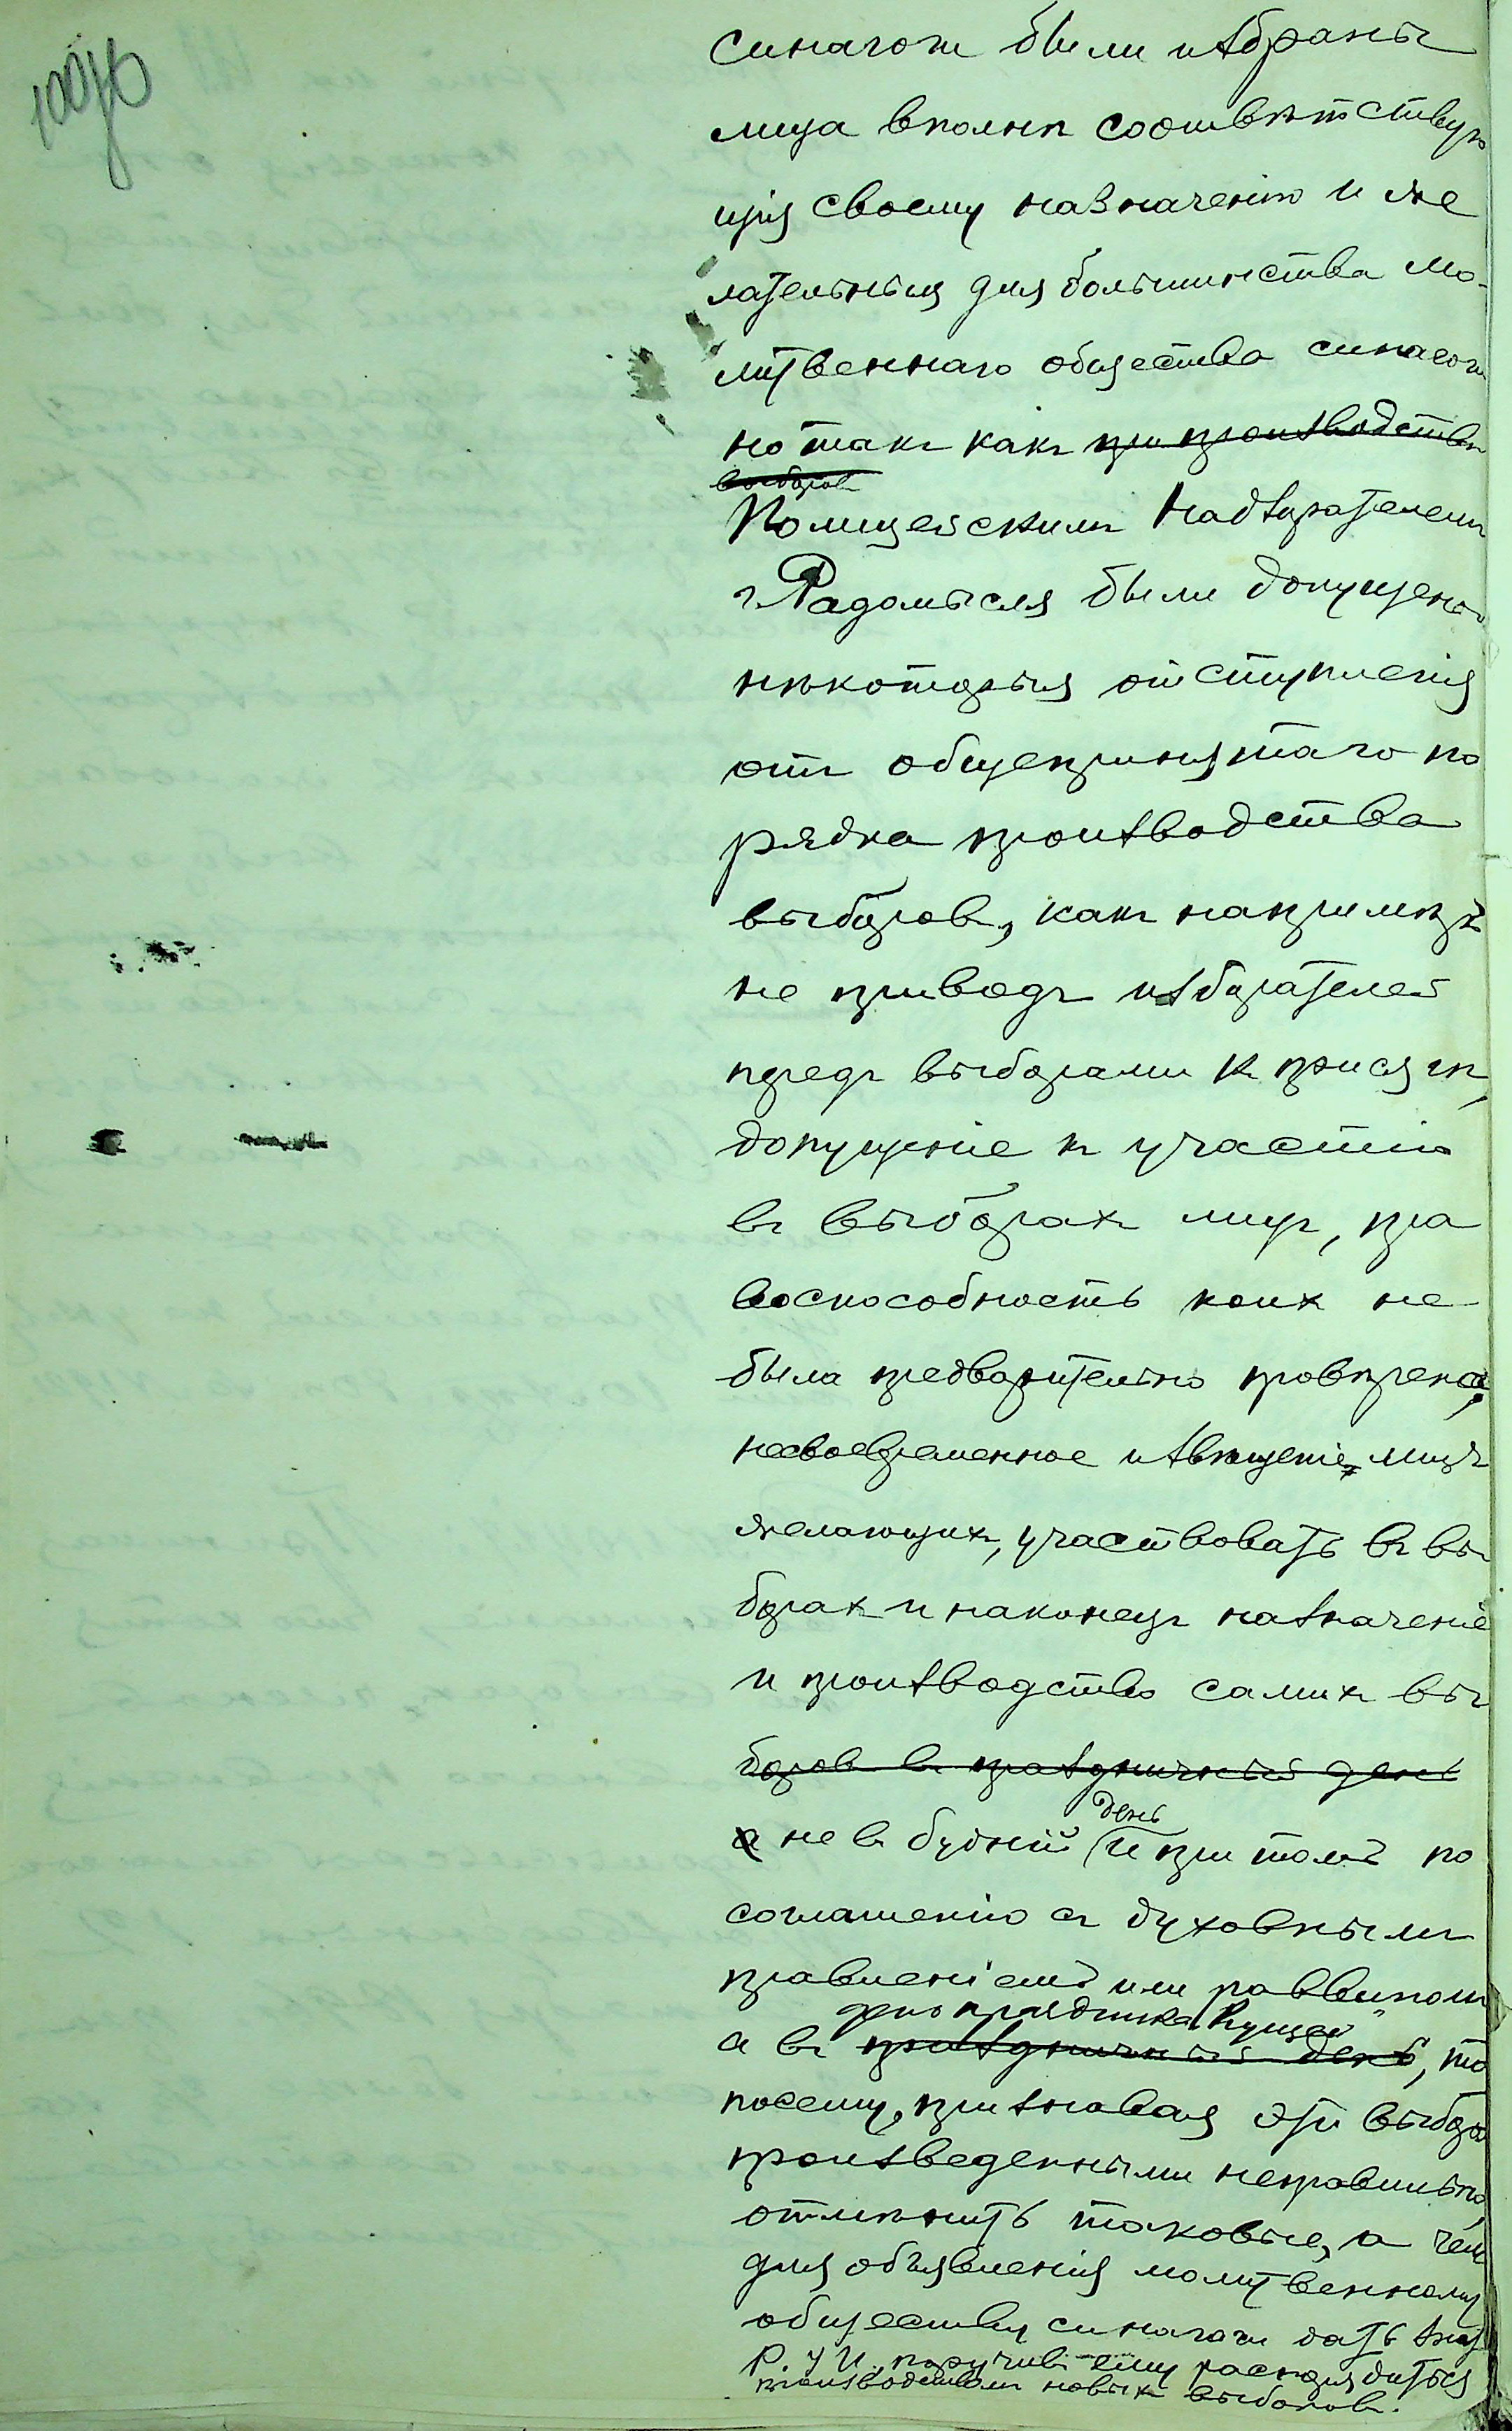 100 об
синагоги были избраны
лица вполнѣ соотвѣтствую
щія своему назначенію и же
лательныя для большинства мо-
литвеннаго общества синагоги
но такъ какъ при производствѣ
выборовъ
Полицейскимъ Надзирателемъ
г. Радомысля были допущены
нѣкоторыя отступленія
отъ общепринятаго по
рядка производства
выборовъ, какъ напримѣръ
не приводъ избирателей
предъ выборами к присягѣ,
допущеніе къ участію
въ выборахъ лицъ, пра
воспособность коихъ не
была предварительно провѣрена,
несвоевременное извѣщеніе лицъ
желающихъ, участвовать въ вы
борахъ и наконецъ назначеніе
и производство самихъ вы
боровъ въ праздничный день
а не въ будній день и при томъ по
соглашенію съ духовнымъ
правленіемъ или раввиномъ
день праздника „Кущей“
а въ праздничный день, то
посему, признавая эти выборы
произведенными неправильно,
отмѣнить таковые, о чемъ
для объявленія молитвенному
обществу синагоги дать знать
Р. У. И., поручивъ ему распорядиться
производствомъ новыхъ выборовъ.